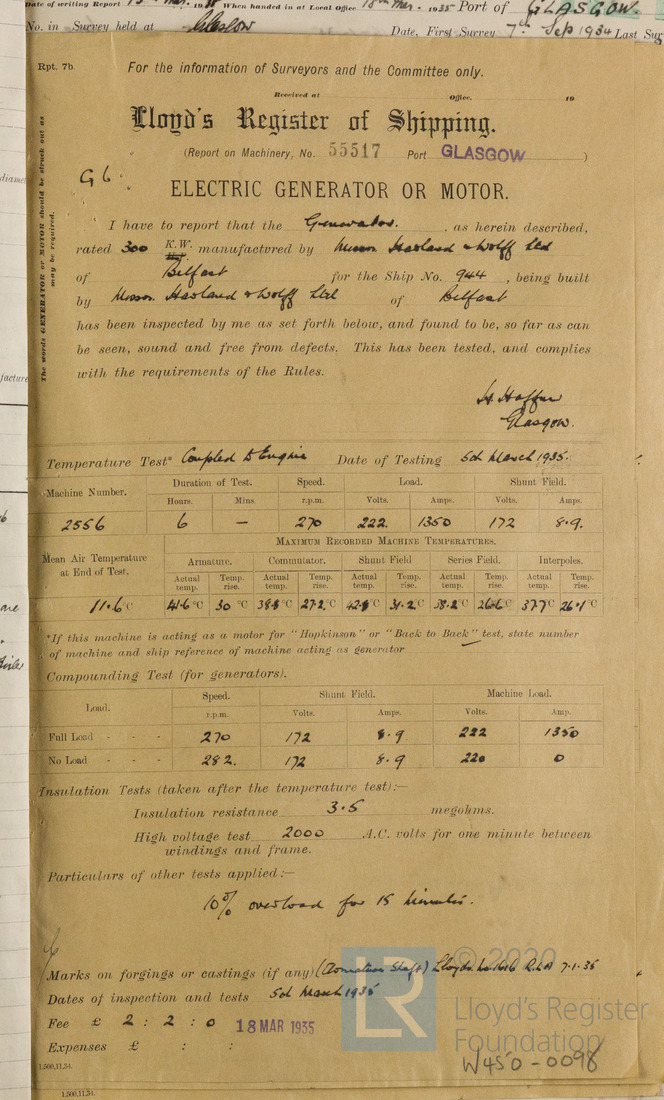 Date of writing Report 19 When handed in at Local Office 1935 Port of GLASGOW.
No. in Survey held at Glasgow Date, First Survey 7th Sep 1934 Last Sur
Rpt. 7b.
For the information of Surveyors and the Committee only.
Received at Office. 19
Lloyd's Register of Shipping.
(Report on Machinery, No. 55517 Port GLASGOW )
G 6.
ELECTRIC GENERATOR OR MOTOR.
The words GENERATOR or MOTOR should be struck out as
may be required.
I have to report that the Generator. , as herein described,
rated 300 K.W. manufactured by Messrs Harland & Wolff Ltd
of Belfast for the Ship No. 944 , being built
by Messrs. Harland & Wolff Ltd of Belfast
has been inspected by me as set forth below, and found to be, so far as can
be seen, sound and free from defects. This has been tested, and complies
with the requirements of the Rules.
Glasgow.
Temperature Test* Coupled to Engine Date of Testing 5th March 1935.
Machine Number. Duration of Test. Speed. Load. Shunt Field.
Hours. Mins. r.p.m. Volts. Amps. Volts. Amps.
2556 6 — 270 222 1350 172 8.9.
Mean Air Temperature at End of Test. MAXIMUM RECORDED MACHINE TEMPERATURES.
Armature. Commutator. Shunt Field Series Field. Interpoles.
Actual temp. Temp. rise. Actual temp. Temp. rise. Actual temp. Temp. rise. Actual temp. Temp. rise. Actual temp. Temp. rise.
11.6°C 41.6°C 30°C 38.8°C 27.2°C 31.2°C 38.2°C 26.6°C 37.7°C 26.1°C
*If this machine is acting as a motor for "Hopkinson" or "Back to Back" test, state number
of machine and ship reference of machine acting as generator
Compounding Test (for generators).
Load. Speed. Shunt Field. Machine Load.
r.p.m. Volts. Amps. Volts. Amp.
Full Load - - - 270 172 8.9 222 1350
No Load - - - 282. 172 8.9 220 0
Insulation Tests (taken after the temperature test):—
Insulation resistance 3.5 megohms.
High voltage test 2000 A.C. volts for one minute between
windings and frame.
Particulars of other tests applied:—
10% overload for 15 minutes.
Marks on forgings or castings (if any) (Armature Shaft) Lloyds No 1616 7-1-35
Dates of inspection and tests 5th March 1935
Fee £ 2 : 2 : 0 18 MAR 1935
Expenses £ : :
1,500,11,34.
1,500,11,34.
© 2020
LR
Lloyd's Register
Foundation
W450-0098